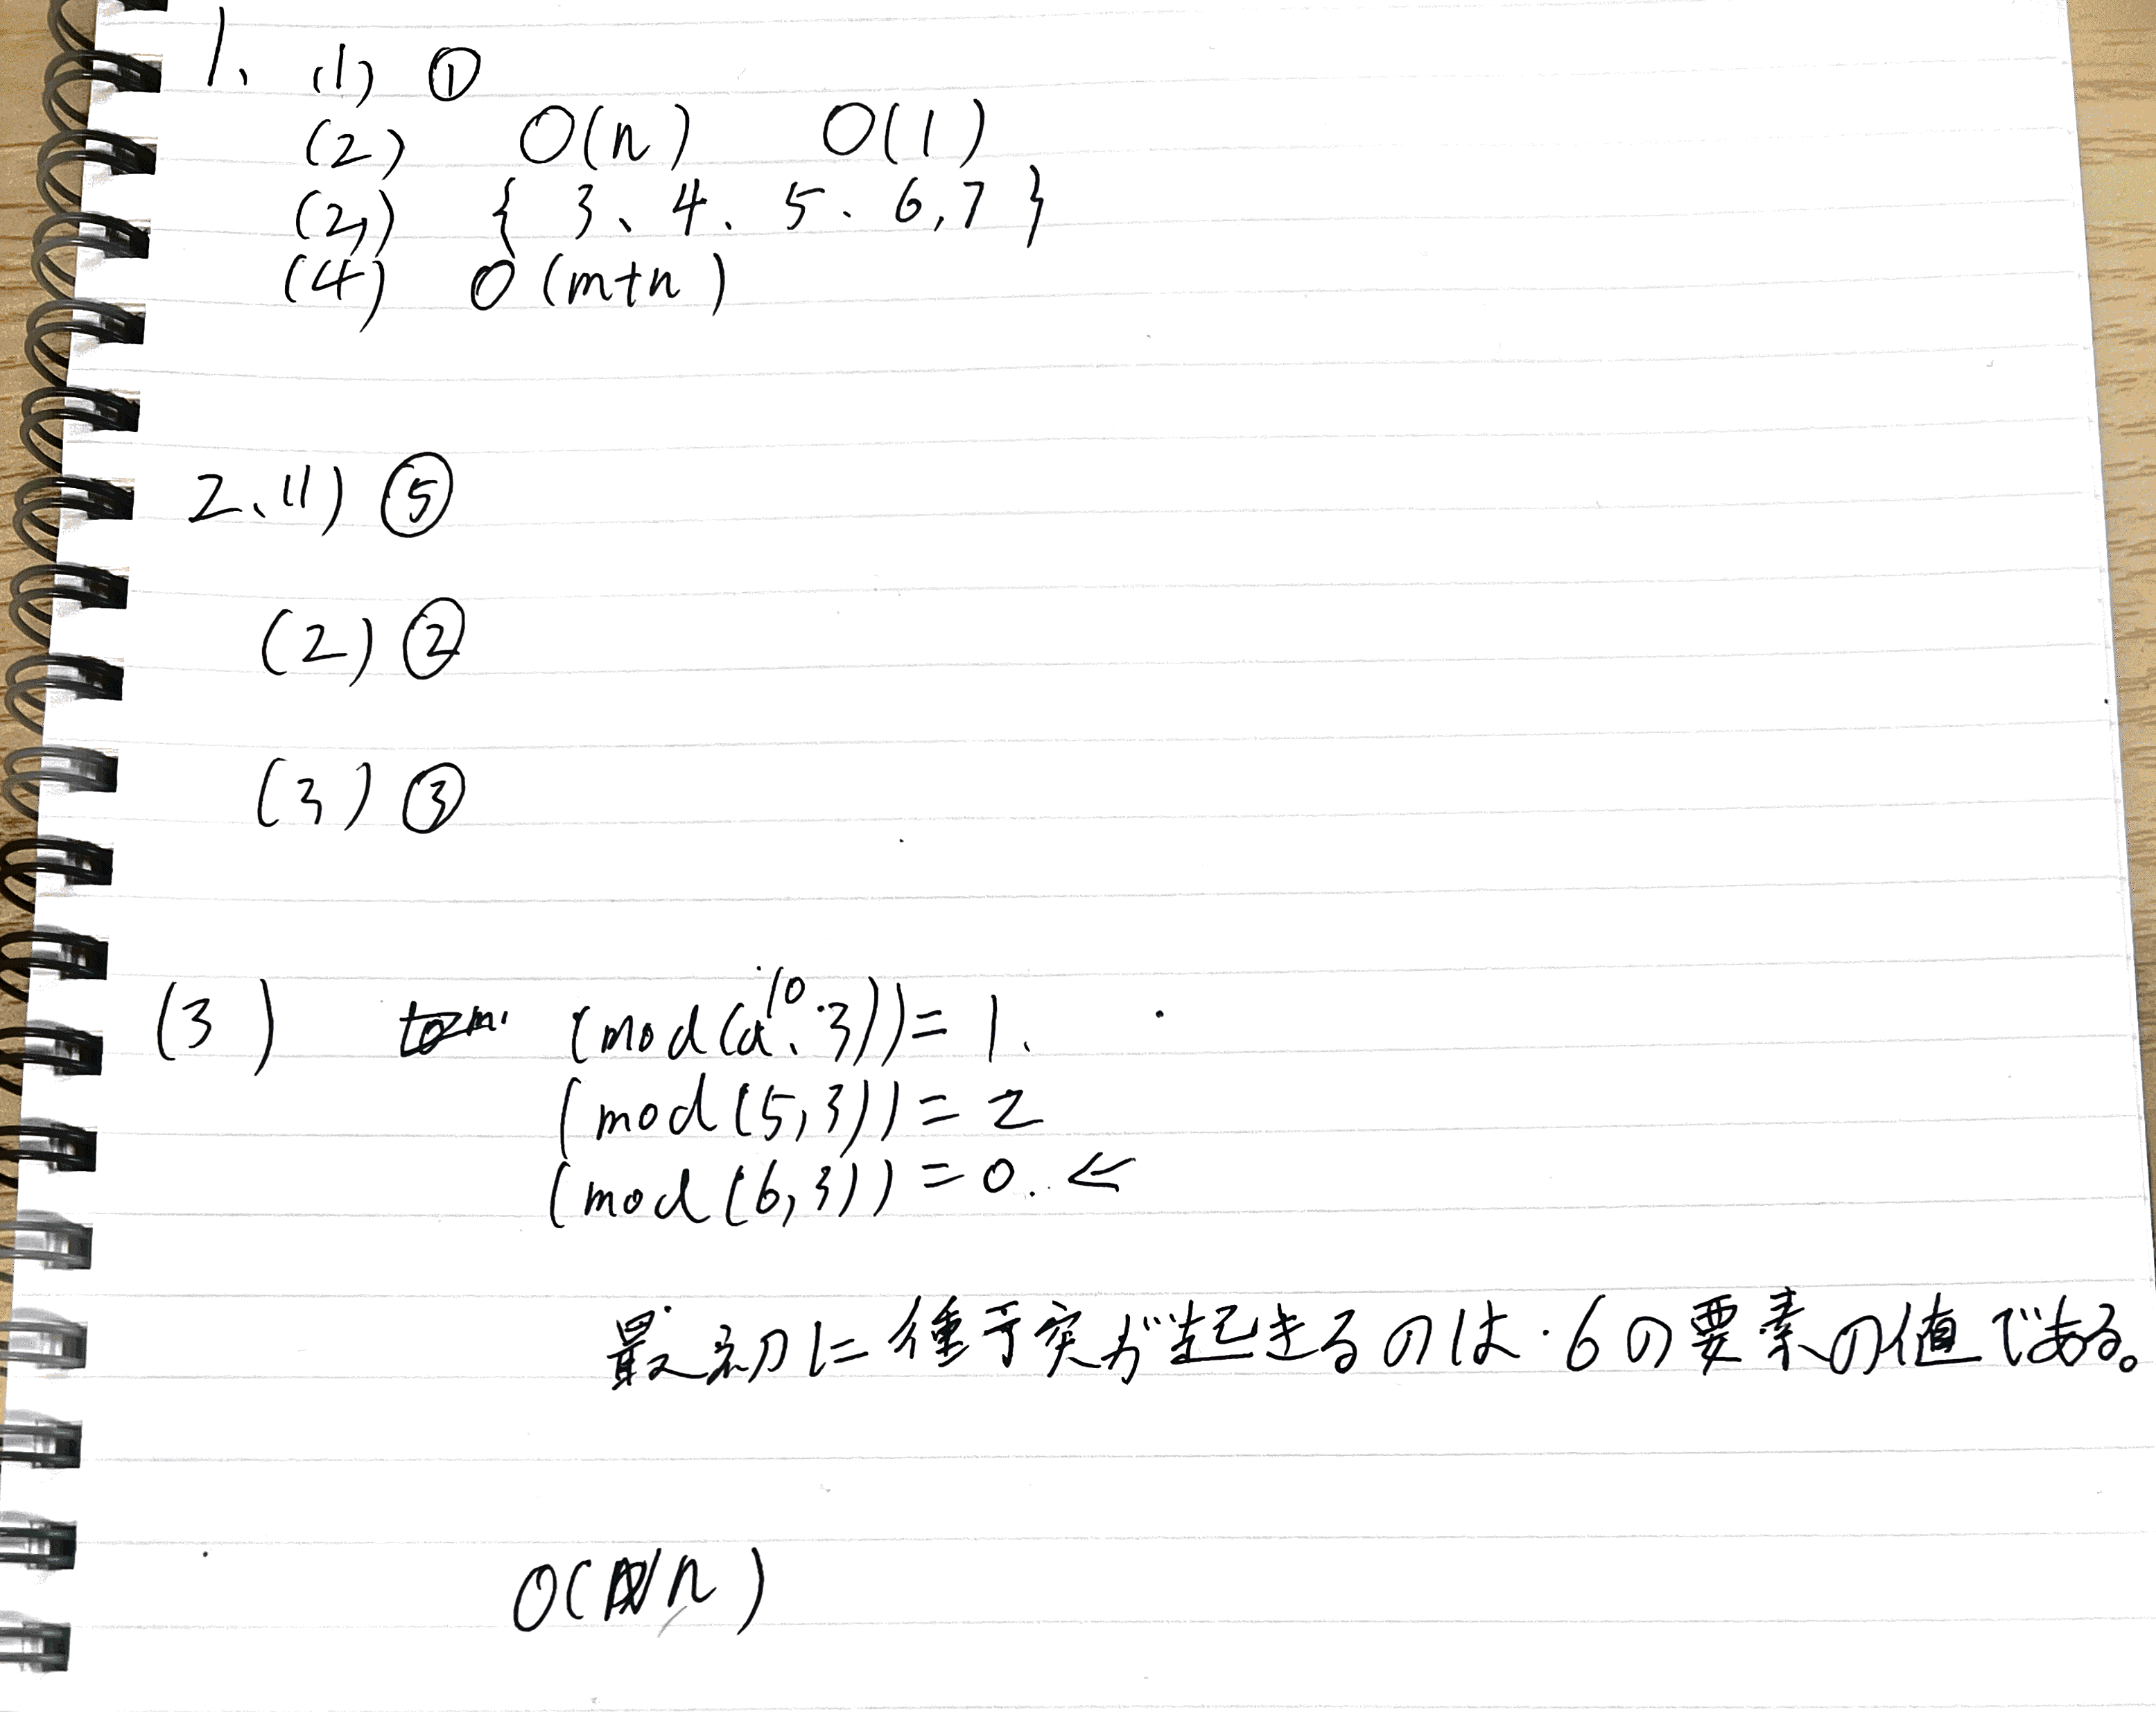 1、(1) ①
(2) O(n) O(1)
(2) { 3、4、5、6,7 }
(4) O(m+n)
2、(1) ⑤
(2) ②
(3) ③
(3) (mod(10.3))=1.
(mod(5,3))=2
(mod(6,3))=0. ⇐
最初に衝突が起きるのは.6の要素の値である。
O(n)